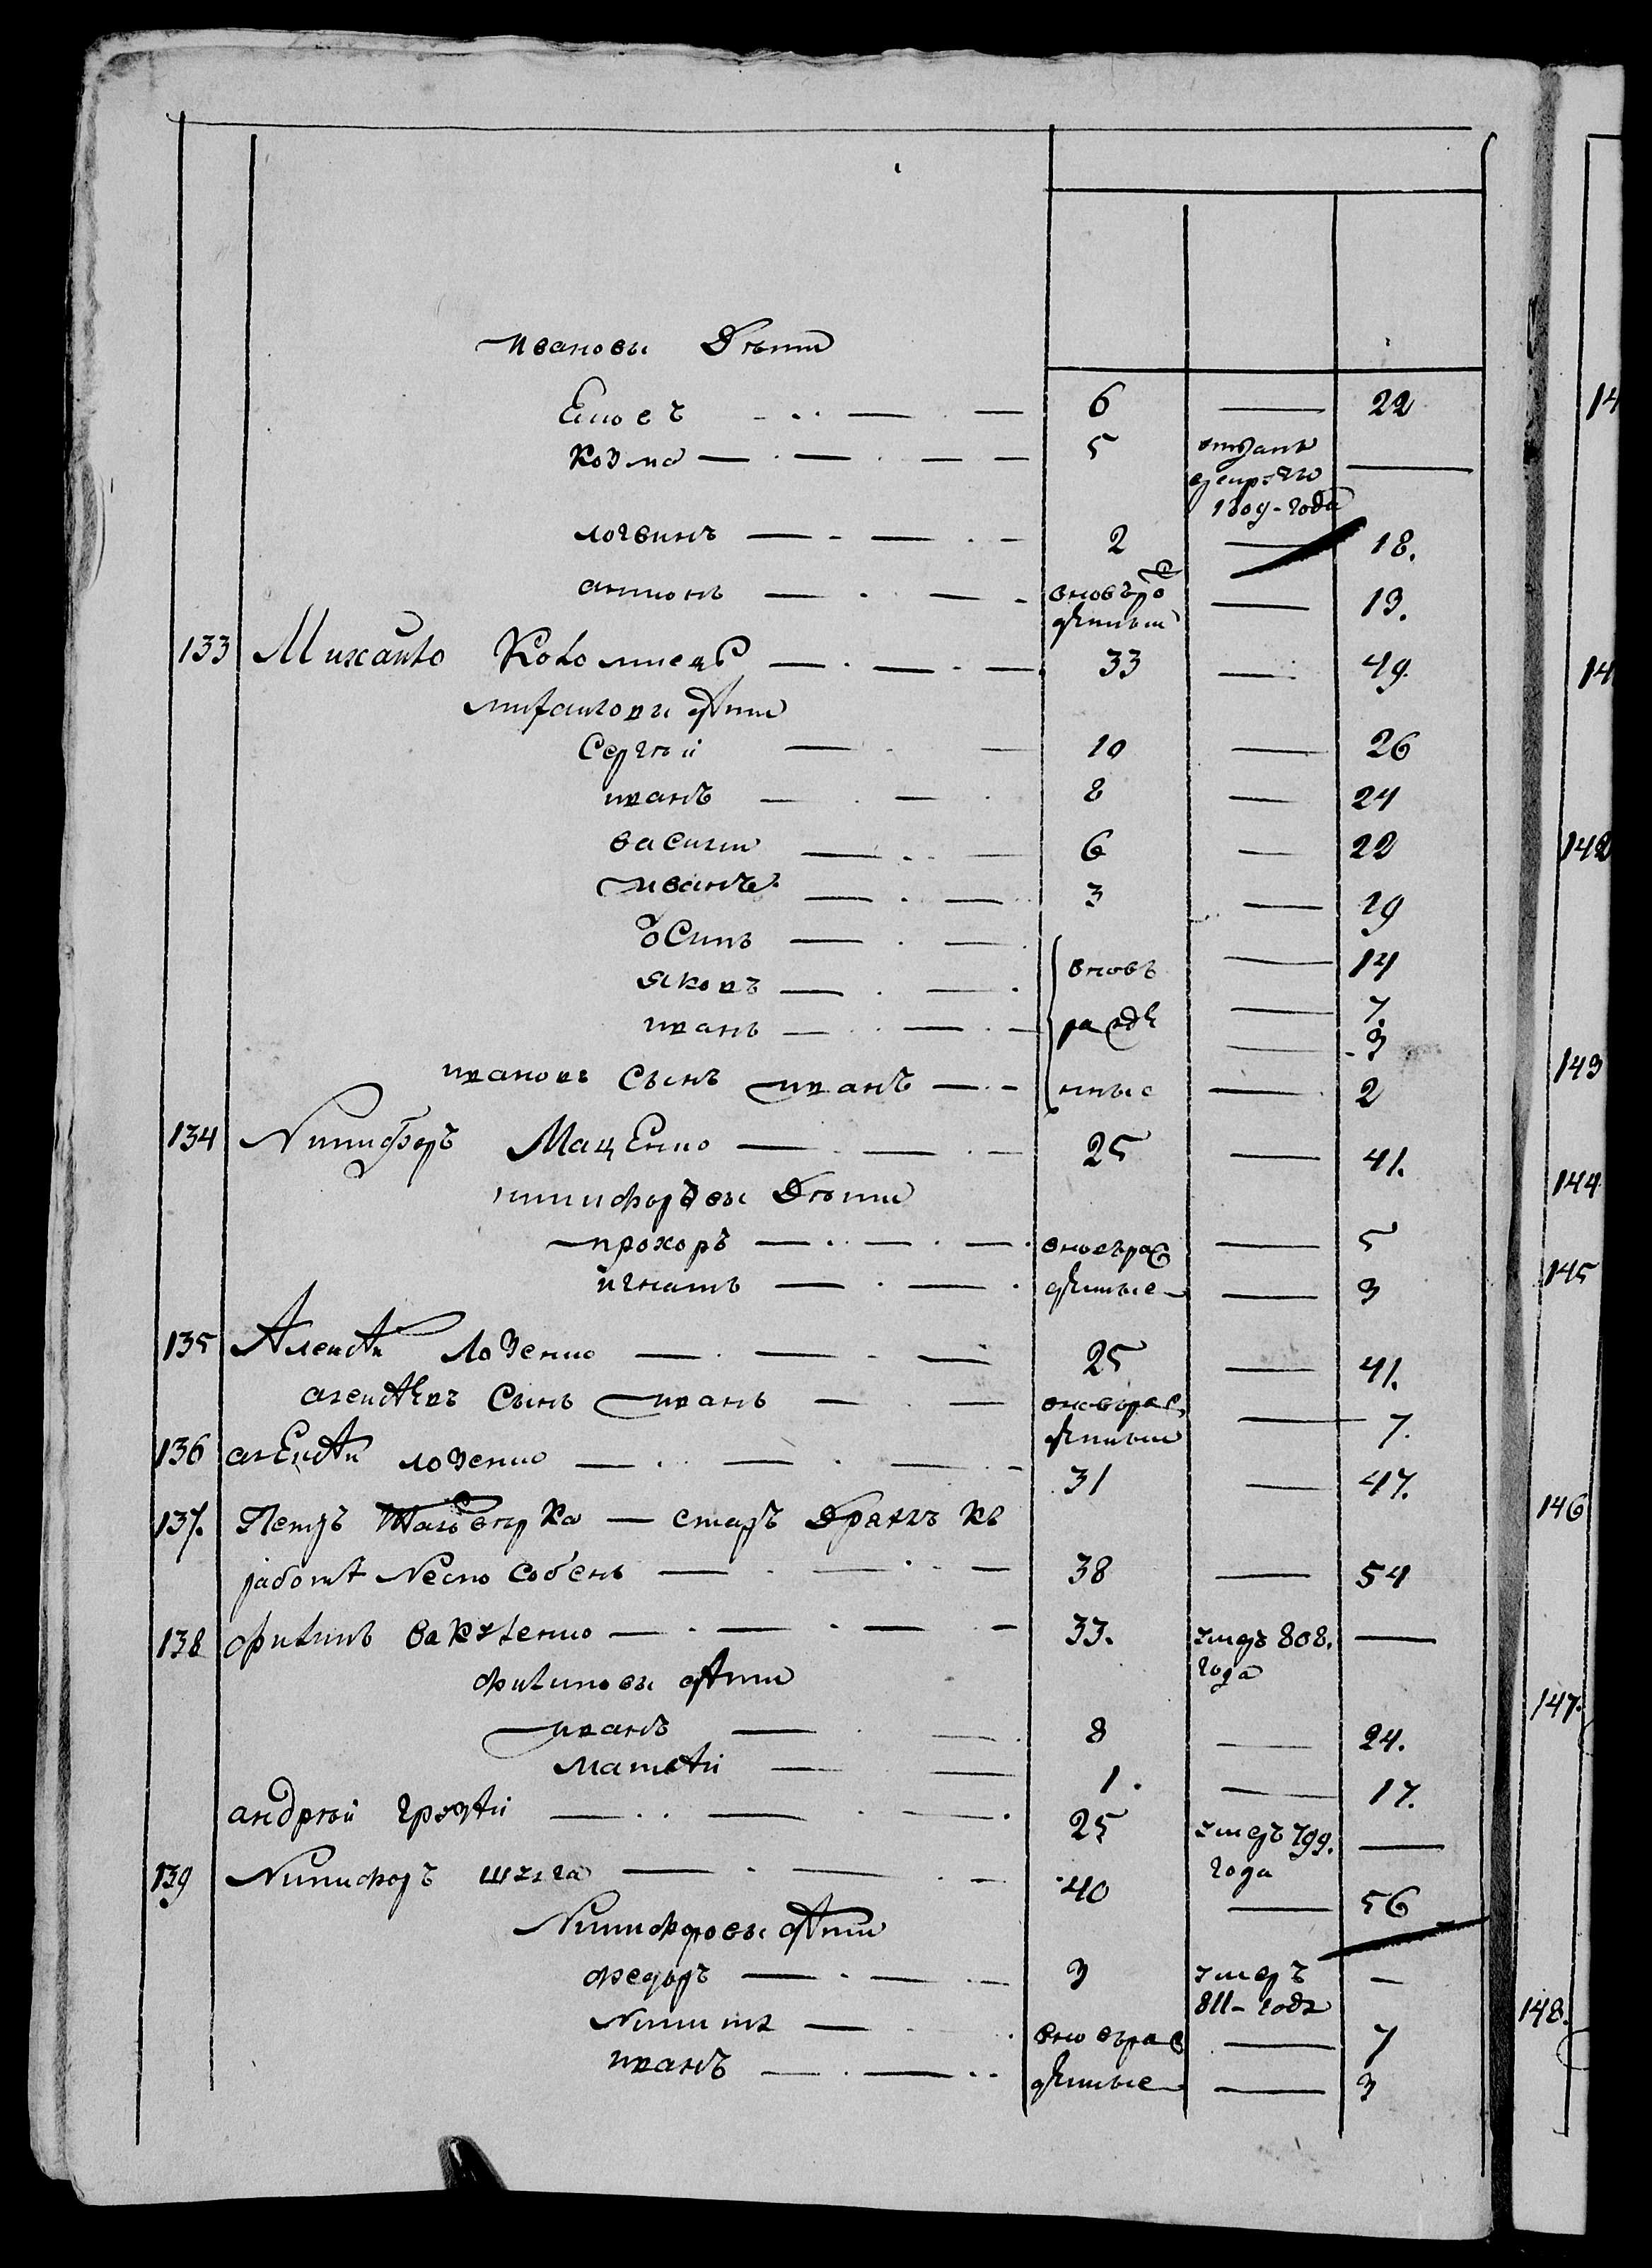 Ивановы Дѣти
6 22
Козма 5 отданъ
въ рекруты
1809-года
логвинъ 2 18.
антонъ вновъро 13.
жденный
133 Михайло Коломиецъ 33 49.
михайловы дѣти
Сергѣй 10 26
иванъ 8 24
василій 6 22
иванъ 3 19
Осипъ вновь 14
яковъ рожде 7.
иванъ 3
ивановъ сынъ иванъ нные 2
134 Никифоръ Маценко 25 41.
никифоровы Дѣти
прохоръ вновърож 5
игнатъ денные 3
135 Алексѣй Лозенко 25 41.
алексѣевъ сынъ иванъ вновърож
денный 7.
136 алексѣй лозенко 31 47.
137. Петръ старъ Дряхлъ къ
работѣ Неспособенъ 38 54
138 филипъ вакуленко 33. умеръ 808.
года
филиповы дѣти
иванъ 8 24.
матвѣй 1. 17.
андрѣй 25 умеръ 799.
года
139 Никифоръ шуліга 40 56
Никифоровы дѣти
федоръ 3 умеръ
811-года
Никита вновърож 7
иванъ денные 3
14
14
142
143
144
145
146
147.
148.